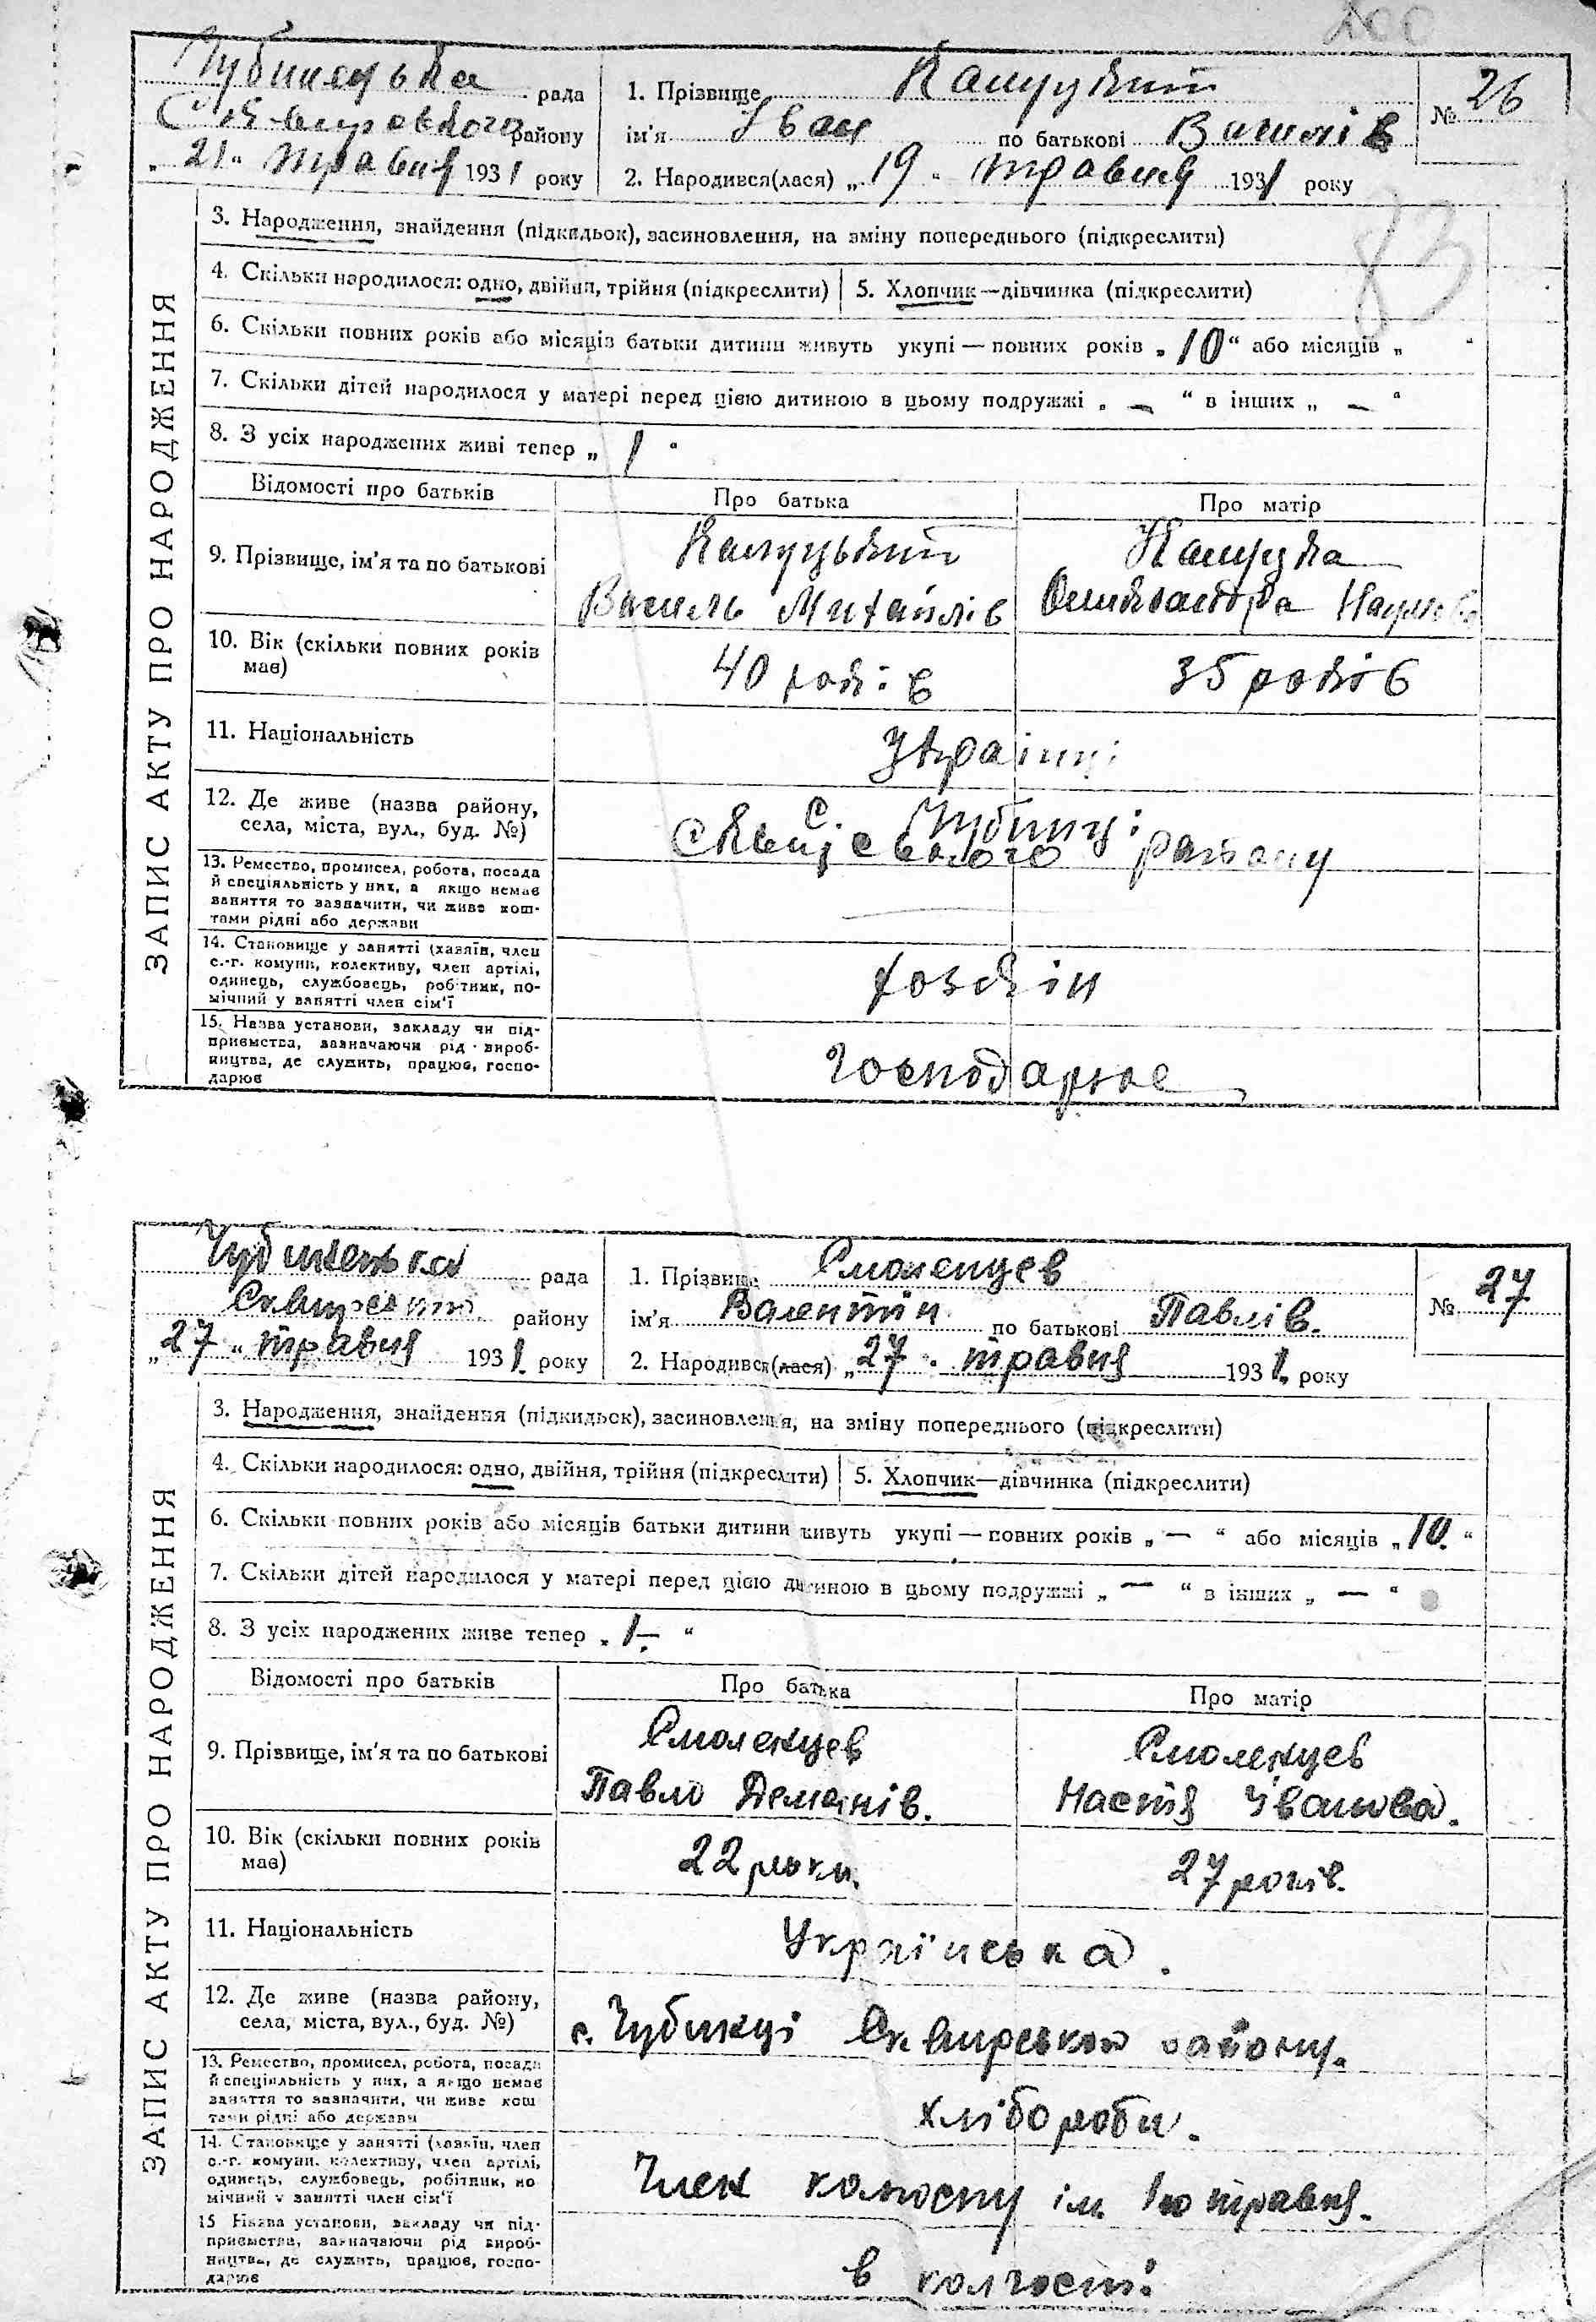 200
Чубинецька рада
Сквирського району
„21“ травня 1931 року
1. Прізвище Кашуцький
ім'я Іван по батькові Василів
2. Народився(лася) „19“ травня 1931 року
№ 26
83
ЗАПИС АКТУ ПРО НАРОДЖЕННЯ
3. Народження, знайдення (підкидьок), засиновлення, на зміну попереднього (підкреслити)
4. Скільки народилося: одно, двійня, трійня (підкреслити) 5. Хлопчик—дівчинка (підкреслити)
6. Скільки повних років або місяців батьки дитини живуть укупі — повних років „10“ або місяців „ “
7. Скільки дітей народилося у матері перед цією дитиною в цьому подружжі „—“ в інших „—“
8. З усіх народжених живі тепер „1“
Відомості про батьків Про батька Про матір
9. Прізвище, ім'я та по батькові
Кашуцький
Василь Михайлів
Олександра
10. Вік (скільки повних років має)
40 років 35 років
11. Національність
Українці
12. Де живе (назва району,
села, міста, вул., буд. №)
с. Чубинці
району
13. Ремество, промисел, робота, посада
й спеціяльність у них, а якщо немає
заняття то зазначити, чи живе кош-
тами рідні або держави
—
14. Становище у занятті (хазяїн, член
с.-г. комуни, колективу, член артілі,
одинець, службовець, робітник, по-
мічний у занятті член сім'ї
15. Назва установи, закладу чи під-
приємства, зазначаючи рід вироб-
ництва, де служить, працює, госпо-
дарює
господарює
Чубинецька рада
Сквирського району
„27“ травня 1931 року
1. Прізвище Смоленцев
ім'я Валентін по батькові Павлів.
2. Народився(лася) „27“ травня 1931 року
№ 27
ЗАПИС АКТУ ПРО НАРОДЖЕННЯ
3. Народження, знайдення (підкидьок), засиновлення, на зміну попереднього (підкреслити)
4. Скільки народилося: одно, двійня, трійня (підкреслити) 5. Хлопчик—дівчинка (підкреслити)
6. Скільки повних років або місяців батьки дитини живуть укупі — повних років „—“ або місяців „10.“
7. Скільки дітей народилося у матері перед цією дитиною в цьому подружжі „—“ в інших „—“
8. З усіх народжених живе тепер „1—“
Відомості про батьків Про батька Про матір
9. Прізвище, ім'я та по батькові
Смоленцев Смоленцев
Павло Демянів. Настя Іванова.
10. Вік (скільки повних років має)
22 роки. 27 років.
11. Національність
Українська.
12. Де живе (назва району,
села, міста, вул., буд. №)
с. Чубинці Сквирського району.
13. Ремество, промисел, робота, посада
й спеціяльність у них, а якщо немає
заняття то зазначити, чи живе кош
тами рідні або держави
хлібороби.
14. Становище у занятті (хазяїн, член
с.-г. комуни, колективу, член артілі,
одинець, службовець, робітник, по
мічний у занятті член сім'ї
Член колгоспу ім. 1го травня.
15. Назва установи, закладу чи під-
приємства, зазначаючи рід вироб-
ництва, де служить, працює, госпо-
дарює
в колгоспі